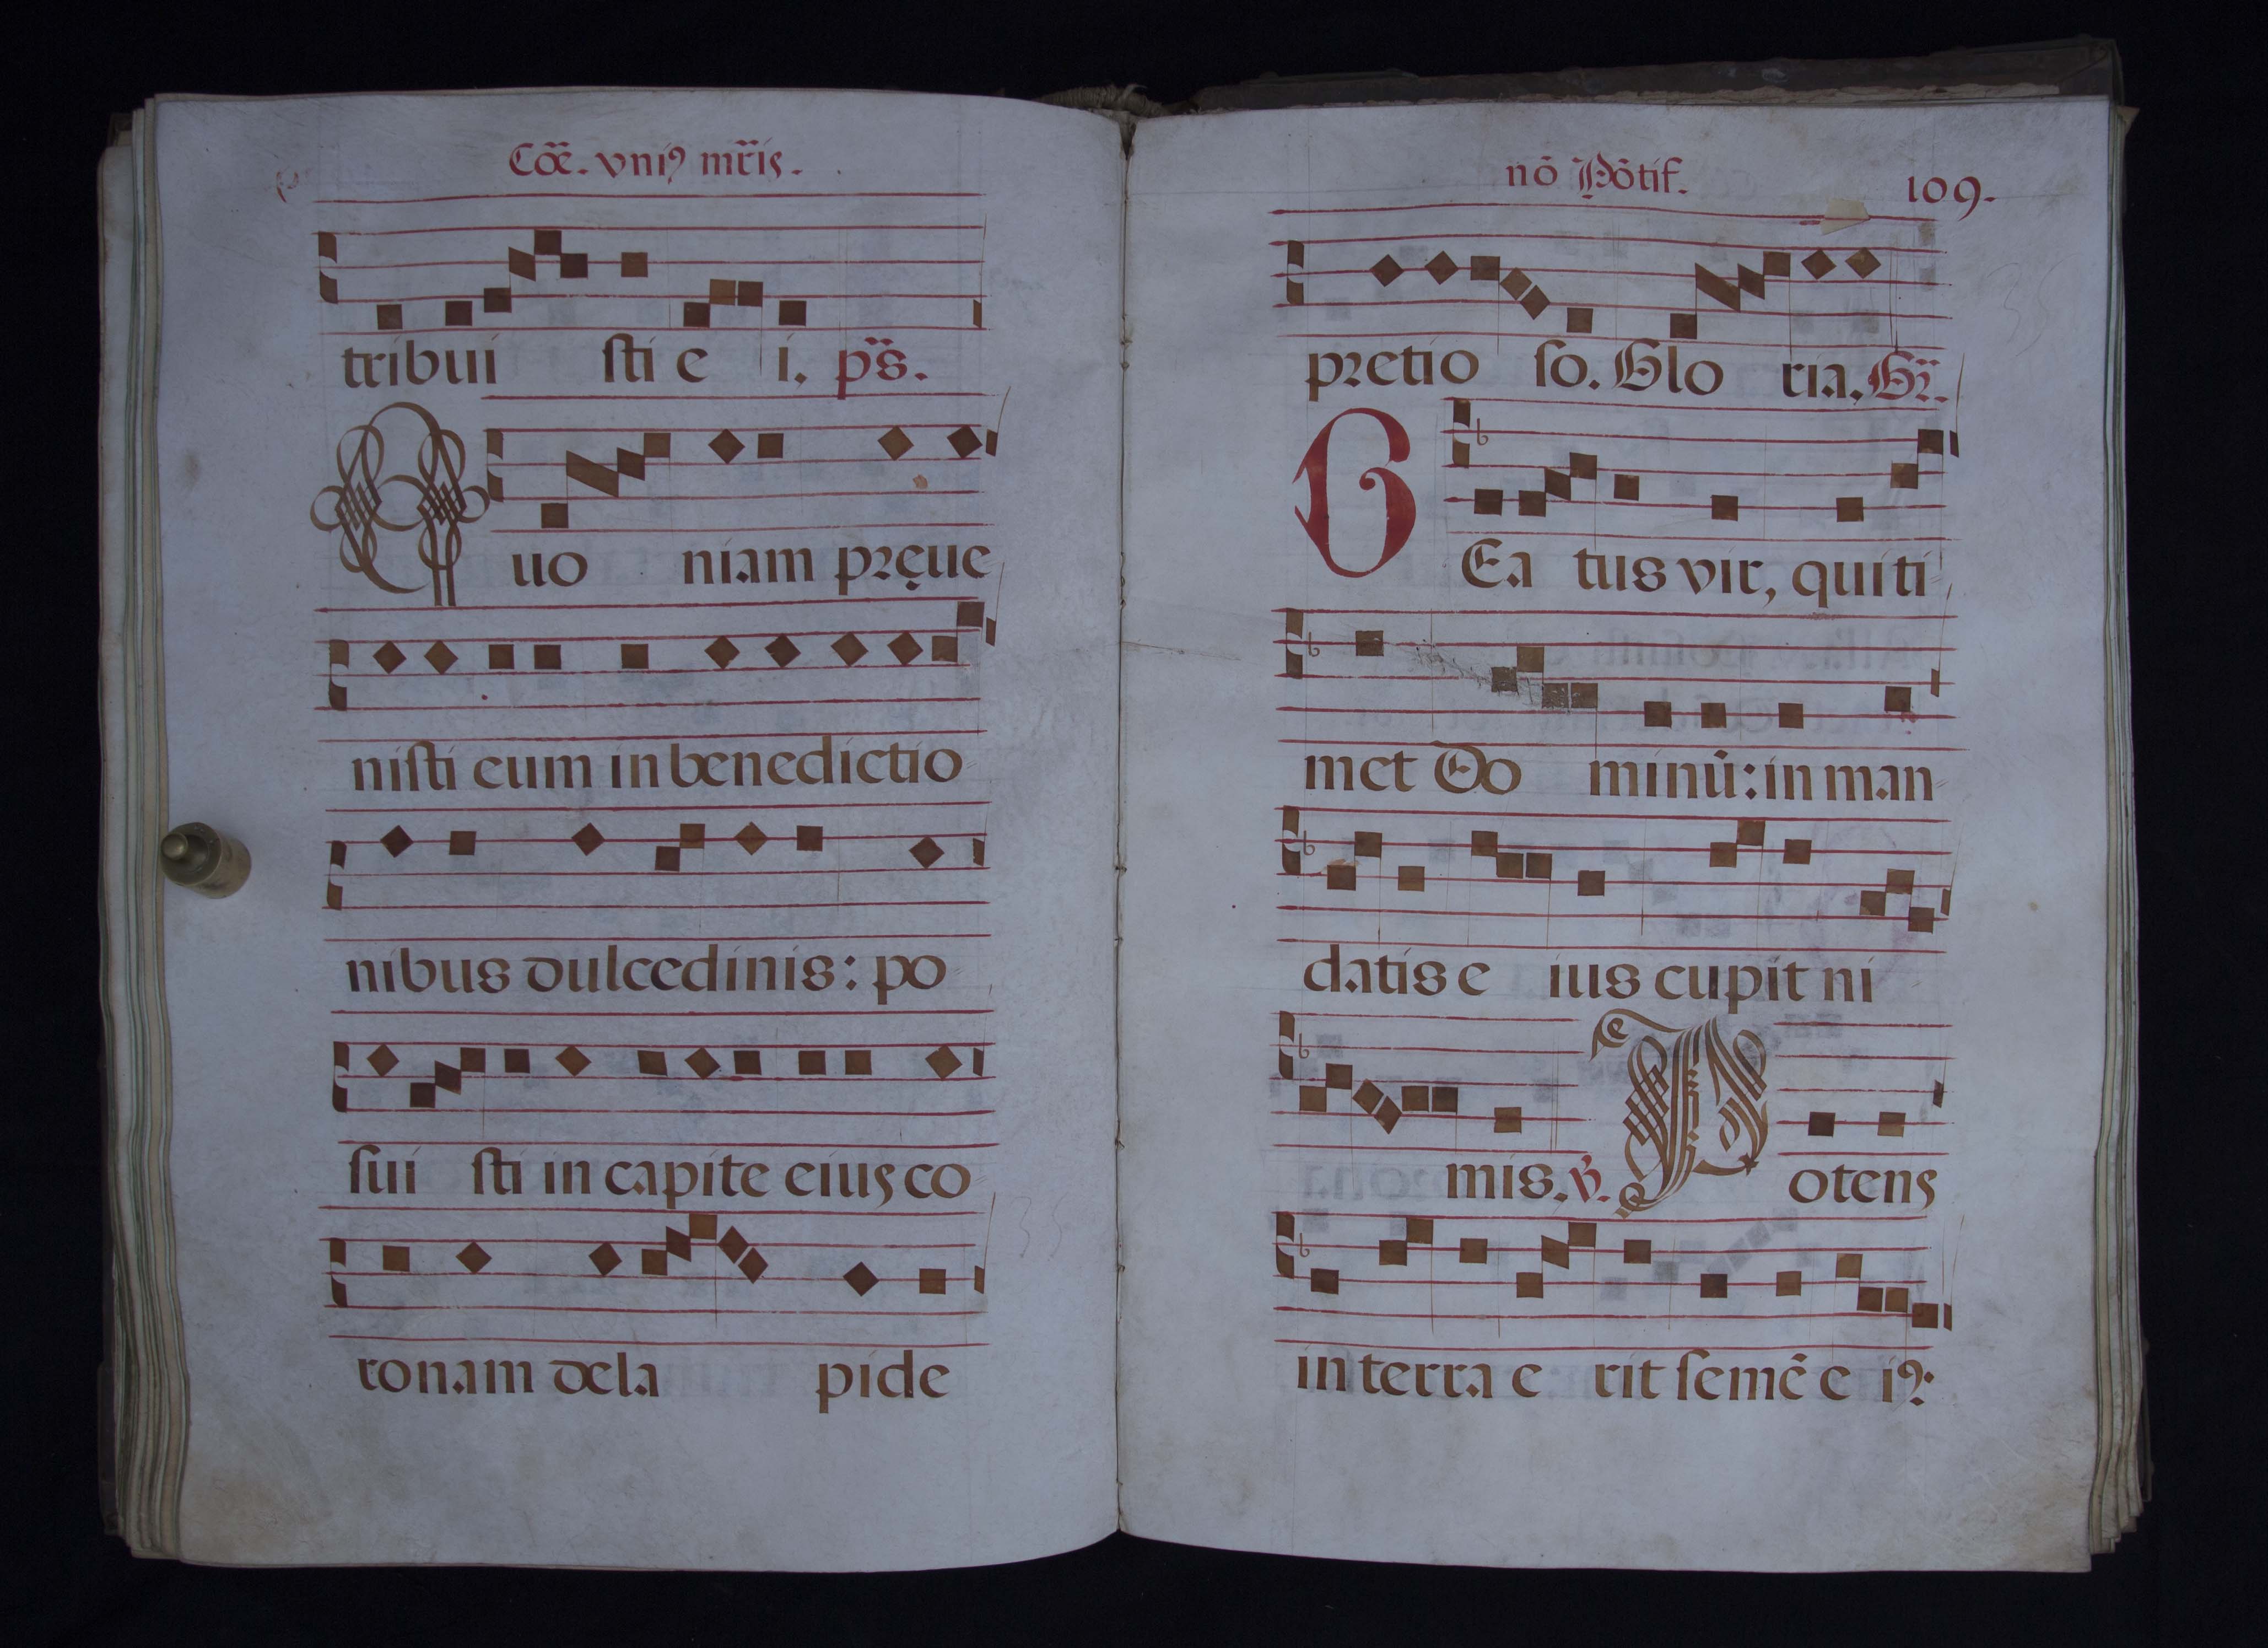 Cōē. vniꝯ mr̄is.
tribui sti e i. ps̄.
Quo niam pręue
nisti eum in benedictio
nibus dulcedinis: po
sui sti in capite eius co
ronam de la pide
nō Pōtif. 109.
pretio so. Glo ria. Gr̄.
BEa tus vir, qui ti
met Do minū: in man
datis e ius cupit ni
mis. ℣. Potens
in terra e rit semē e iꝯ: